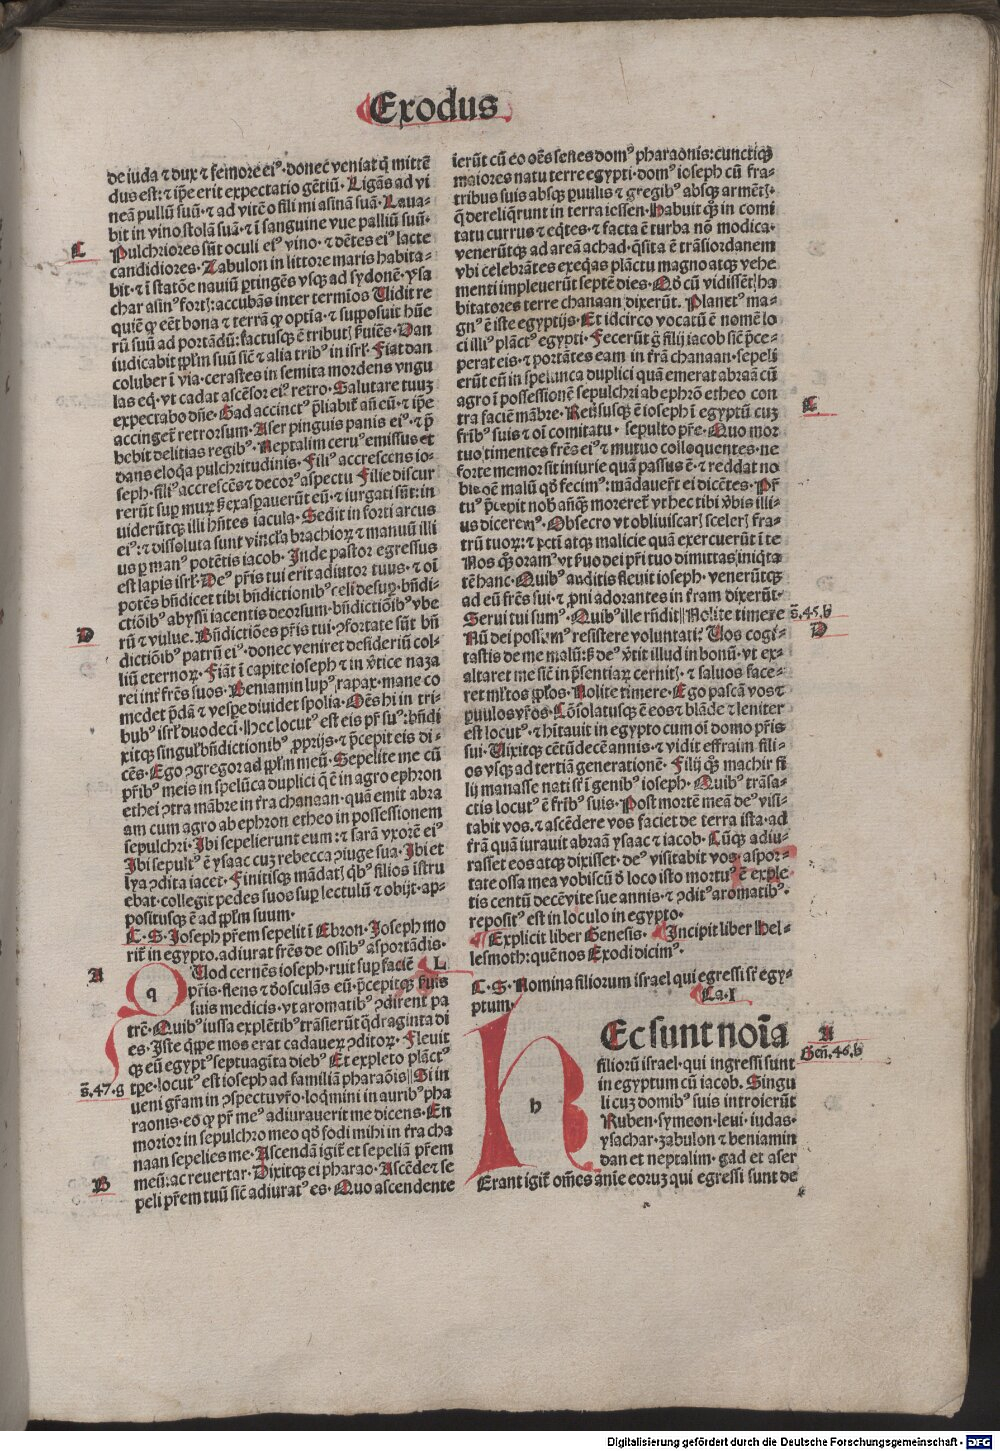 Exodus
de iuda ⁊ dux ⁊ femore eiꝰ·donec veniat q̄ mittē
dus est:⁊ ip̄e erit expectatio gētiū· Ligās ad vi
neā pullū suū·⁊ ad vitē o fili mi asinā suā· Laua-
bit in vino stolā suā·⁊ ī sanguine vue palliū suū·
C
Pulchriores sūt oculi eiꝰ vino·⁊ dētes eiꝰ lacte
candidiores· Zabulon in littore maris habita-
bit·⁊ ī statōe nauiū ꝑtingēs vsqꝫ ad sydonē·ysa
char asinꝰ fortꝭ:accubās inter termīos Uidit re
quiē ꝙ eēt bona ⁊ terrā ꝙ optīa·⁊ supposuit hūe
rū suū ad portādū:factusqꝫ ē tributꝭ ẜuiēs· Dan
iudicabit ppl̄m suū sic̄ ⁊ alia tribꝰ in isrl̄· Fiat dan
coluber ī via·cerastes in semita mordens vngu
las eq̄·vt cadat ascēsor eiꝰ retro· Salutare tuuꝫ
expectabo dn̄e· Gad accinctꝰ p̄liabit̄ an̄ eū·⁊ ip̄e
accinget̄ retrorsum· Aser pinguis panis eiꝰ·⁊ p̄
bebit delitias regibꝰ· Neptalim ceruꝰ emissus et
dans eloq̄a pulchritudinis· Filiꝰ accrescens io-
seph·filiꝰ accrescēs ⁊ decorꝰ aspectu Filie discur
rerūt suꝑ murꝝ ꝫ exaspauerūt eū·⁊ iurgati sūt:in
uiderūtqꝫ illi hn̄tes iacula· Sedit in forti arcus
eiꝰ:⁊ dissoluta sunt vincl̄a brachioꝝ ⁊ manuū illi
us ꝑ manꝰ potētis iacob· Inde pastor egressus
est lapis isrl̄· Deꝰ pr̄is tui erit adiutor tuus·⁊ oī
potēs bn̄dicet tibi bn̄dictionibꝰ celi desuꝑ·bn̄di-
ctiōibꝰ abyssi iacentis deorsum·bn̄dictiōibꝰ vbe
D
rū ⁊ vulue· Bn̄dictiōes pr̄is tui ꝯfortate sūt bn̄
dictiōibꝰ patrū eiꝰ·donec veniret desideriū col-
liū eternoꝝ· Fiāt ī capite ioseph ⁊ in v̄tice naza
rei int̄ fr̄es suos· Beniamin lupꝰ rapax·mane co
medet p̄dā ⁊ vespe diuidet spolia· Oēs hi in tri-
bubꝰ isrl̄ duodeci· hec locutꝰ est eis pr̄ suꝰ:bn̄di
xitqꝫ singul̄ bn̄dictionibꝰ ꝓprijs·⁊ p̄cepit eis di-
cēs· Ego ꝯgregor ad ppl̄m meū· Sepelite me cū
pr̄ibꝰ meis in spelūca duplici q̄ ē in agro ephron
ethei ꝯtra mābre in tr̄a chanaan·quā emit abra
am cum agro ab ephron etheo in possessionem
sepulchri· Ibi sepelierunt eum:⁊ sarā vxorē eiꝰ
Ibi sepultꝰ ē ysaac cuꝫ rebecca ꝯiuge sua· Ibi et
lya ꝯdita iacet· Finitisqꝫ mādatꝭ qꝭbꝰ filios īstru
ebat·collegit pedes suos suꝑ lectulū ⁊ obijt·ap-
positusqꝫ ē ad ppl̄m suum·
C·S· Ioseph pr̄em sepelit ī Ebron· Ioseph mo
rit̄ in egypto·adiurat fr̄es de ossibꝰ asportādis·
A
Uod cernēs ioseph·ruit suꝑ faciē L
q
pr̄is·flens ⁊ ꝺosculās eū·p̄cepitqꝫ ẜuis
suis medicis·vt aromatibꝰ ꝯdirent pa
trē· Quibꝰ iussa explētibꝰ trāsierūt q̄draginta di
es· Iste q̄ppe mos erat cadaueꝝ ꝯditoꝝ· Fleuit
qꝫ eū egyptꝰ septuagīta diebꝰ Et expleto plāctꝰ
s̄.47.g
tp̄e·locutꝰ est ioseph ad familiā pharaōis Si in
ueni gr̄am in ꝯspectu vr̄o·loq̄mini in auribꝰ pha
raonis·eo ꝙ pr̄ meꝰ adiurauerit me dicens· En
morior in sepulchro meo qd̄ fodi mihi in tr̄a cha
naan sepelies me· Ascendā igit̄ et sepeliā pr̄em
B
meū:ac reuertar· Dixitqꝫ ei pharao· Ascēde⁊ se
peli pr̄em tuū sic̄ adiuratꝰ es· Quo ascendente
ierūt cū eo oēs senes domꝰ pharaonis:cunctiqꝫ
maiores natu terre egypti·domꝰ ioseph cū fra-
tribus suis absqꝫ ꝑuulis ⁊ gregibꝰ absqꝫ armētꝭ·
q̄ dereliq̄runt in terra iessen· Habuit qꝫ in comi
tatu currus ⁊ eq̄tes·⁊ facta ē turba nō modica·
venerūtqꝫ ad areā achad·q̄sita ē trāsiordanem
vbi celebrātes exeq̄as plāctu magno atqꝫ vehe
menti impleuerūt septē dies· Qd̄ cū vidissēt ha
bitatores terre chanaan dixerūt· Planctꝰ ma-
gnꝰ ē iste egyptijs· Et idcirco vocatū ē nomē lo
ci illiꝰ plāctꝰ egypti· Fecerūt g̊ filij iacob sic̄ p̄ce-
perat eis·⁊ portātes eam in tr̄ā chanaan·sepeli
erūt eū in spelunca duplici quā emerat abraā cū
agro ī possessionē sepulchri ab ephrō etheo con
C
tra faciē mābre· Reuersusqꝫ ē ioseph ī egyptū cuꝫ
fr̄ibꝰ suis ⁊ oī comitatu· sepulto pr̄e· Quo mor
tuo timentes fr̄es eiꝰ ⁊ mutuo colloquentes·ne
forte memor sit iniurie quā passus ē·⁊ reddat no
bis oē malū qd̄ fecimꝰ:mādauer̄t ei dicētes· Pr̄
tuꝰ p̄cepit nob̄ an̄qꝫ moreret̄ vt hec tibi v̄bis illi-
us diceremꝰ· Obsecro vt obliuiscarꝭ scelerꝭ fra-
trū tuoꝝ:⁊ pctī atqꝫ malicie quā exercuerūt ī te
Nos qꝫ oramꝰ vt ẜuo dei pr̄i tuo dimittas iniq̄ta
tē hanc· Quibꝰ auditis fleuit ioseph· venerūtqꝫ
ad eū fr̄es sui·⁊ ꝓni adorantes in tr̄am dixerūt·
Serui tui sumꝰ· Quibꝰ ille rn̄dit Nolite timere s̄.45.b
D
Nū dei possumꝰ resistere voluntati? Uos cogi-
tastis de me malū:ꝫ deꝰ v̄tit illud in bonū·vt ex-
altaret me sic̄ in p̄sentiaꝝ cernitꝭ·⁊ saluos face-
ret ml̄tos ppl̄os· Nolite timere· Ego pascā vos ⁊
ꝑuulos vr̄os· Cōsolatusqꝫ ē eos ⁊ blāde ⁊ leniter
est locutꝰ·⁊ hītauit in egypto cum oī domo pr̄is
sui· Uixitqꝫ cētū decē annis·⁊ vidit effraim fili-
os vsqꝫ ad tertiā generationē· Filij qꝫ machir fi
lij manasse nati sr̄t ī genibꝰ ioseph· Quibꝰ trāsa-
ctis locutꝰ ē fr̄ibꝰ suis· Post mortē meā deꝰ visi-
tabit vos·⁊ ascēdere vos faciet de terra ista·ad
tr̄ā quā iurauit abraā ysaac ⁊ iacob· Cūqꝫ adiu-
rasset eos atqꝫ dixisset·deꝰ visitabit vos·aspor-
tate ossa mea vobiscū ꝺ loco isto mortuꝰ ē exple
tis centū decēvite sue annis·⁊ ꝯditꝰ aromatibꝰ·
repositꝰ est in loculo in egypto·
Explicit liber Genesis· Incipit liber Hel-
lesmoth:quē nos Exodi dicimꝰ·
C·S· Nomina filiorum israel qui egressi sr̄t egy-
ptum· Ca·I
h
Ec sunt noīa
A
Gen̄.46.b
filiorū israel·qui ingressi sunt
in egyptum cū iacob. Singu
li cuꝫ domibꝰ suis introierūt
Ruben·symeon·leui·iudas·
ysachar·zabulon ⁊ beniamin
dan et neptalim·gad et aser
Erant igit̄ om̄es anīe eoruꝫ qui egressi sunt de
Digitalisierung gefördert durch die Deutsche Forschungsgemeinschaft - DFG